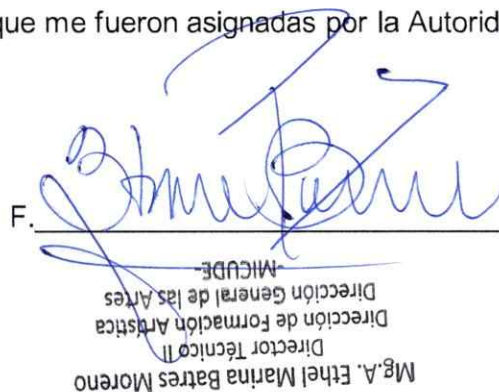 que me fueron asignadas por la Autorid
F.
Mg.A. Ethel Marina Batres Moreno
Director Técnico II
Dirección de Formación Artística
Dirección General de las Artes
-MICUDE-